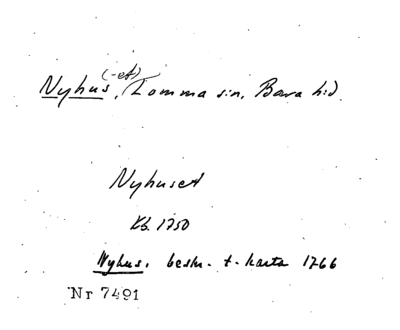 (-et)
Nyhus, Lomma sn, Bara hd.
Nyhuset
Kb. 1750
Nyhus. beskr. t. karta 1766
Nr 7491